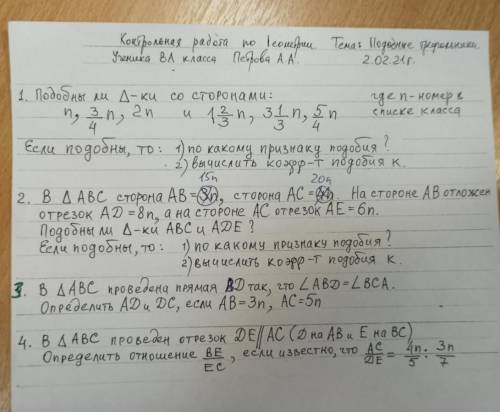 Контрольная работа по Геометрии Тема: Подобные треугольники.
Ученика 8Л класса Петрова А.А. 2.02.21г.
1. Подобны ли Δ-ки со сторонами: где n-номер в
n, 3/4 n, 2n и 1 2/3 n, 3 1/3 n, 5/4 n списке класса
Если подобны, то: 1) по какому признаку подобия?
2) вычислить коэфф-т подобия k.
15n 20n
2. В ΔABC сторона AB= , сторона AC= . На стороне AB отложен
отрезок AD=8n, а на стороне AC отрезок AE=6n.
Подобны ли Δ-ки ABC и ADE?
Если подобны, то: 1) по какому признаку подобия?
2) вычислить коэфф-т подобия k.
3. В ΔABC проведена прямая BD так, что ∠ABD=∠BCA.
Определить AD и DC, если AB=3n, AC=5n
4. В ΔABC проведен отрезок DE∥AC (D на AB и E на BC)
Определить отношение BE/EC, если известно, что AC/DE = 4n/5 : 3n/7